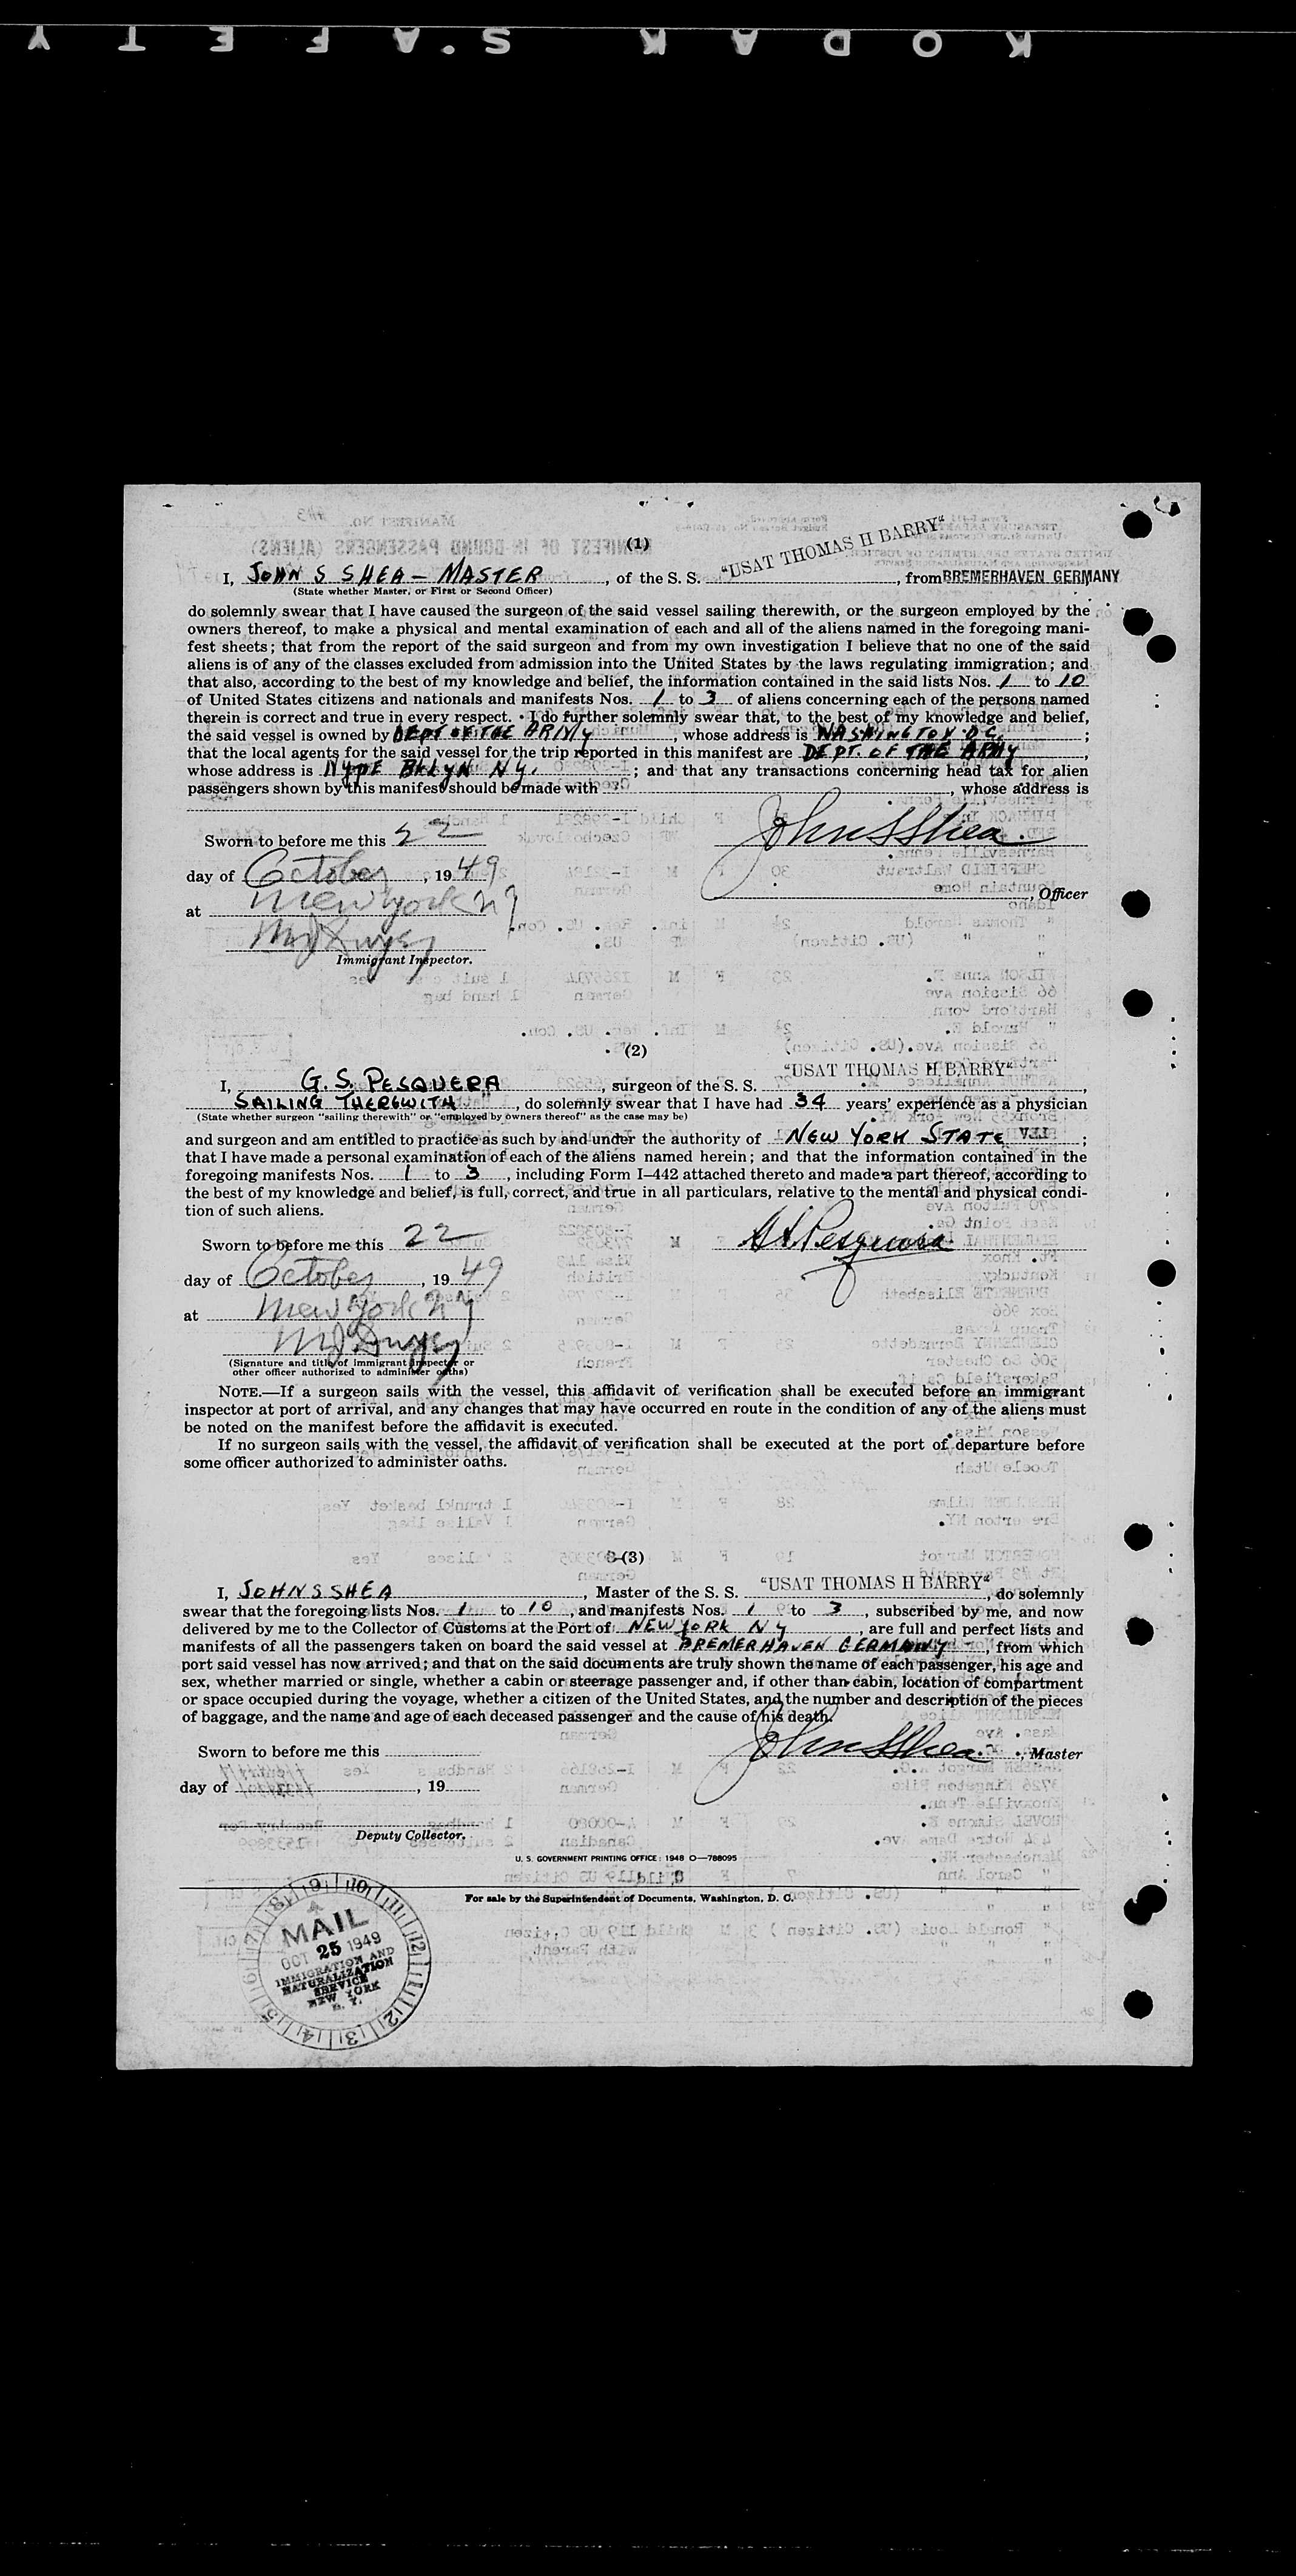 KODAK S.AFETY
(1)
I, JOHN S SHEA - MASTER, of the S. S. "USAT THOMAS H BARRY", from BREMERHAVEN GERMANY
(State whether Master, or First or Second Officer)
do solemnly swear that I have caused the surgeon of the said vessel sailing therewith, or the surgeon employed by the
owners thereof, to make a physical and mental examination of each and all of the aliens named in the foregoing mani-
fest sheets; that from the report of the said surgeon and from my own investigation I believe that no one of the said
aliens is of any of the classes excluded from admission into the United States by the laws regulating immigration; and
that also, according to the best of my knowledge and belief, the information contained in the said lists Nos. 1 to 10
of United States citizens and nationals and manifests Nos. 1 to 3 of aliens concerning each of the persons named
therein is correct and true in every respect. I do further solemnly swear that, to the best of my knowledge and belief,
the said vessel is owned by DEPT OF THE ARMY, whose address is WASHINGTON D.C.;
that the local agents for the said vessel for the trip reported in this manifest are DEPT. OF THE ARMY,
whose address is NYPE BKLYN NY.; and that any transactions concerning head tax for alien
passengers shown by this manifest should be made with, whose address is
Sworn to before me this 22
John S Shea
day of October, 1949
, Officer
at New York NY
MJ Dwyer
Immigrant Inspector.
(2)
I, G. S. PESQUERA, surgeon of the S. S. "USAT THOMAS H BARRY",
SAILING THEREWITH, do solemnly swear that I have had 34 years' experience as a physician
(State whether surgeon "sailing therewith" or "employed by owners thereof" as the case may be)
and surgeon and am entitled to practice as such by and under the authority of NEW YORK STATE;
that I have made a personal examination of each of the aliens named herein; and that the information contained in the
foregoing manifests Nos. 1 to 3, including Form I-442 attached thereto and made a part thereof, according to
the best of my knowledge and belief, is full, correct, and true in all particulars, relative to the mental and physical condi-
tion of such aliens.
Sworn to before me this 22
G S Pesquera
day of October, 1949
at New York NY
MJ Dwyer
(Signature and title of immigrant inspector or
other officer authorized to administer oaths)
NOTE.—If a surgeon sails with the vessel, this affidavit of verification shall be executed before an immigrant
inspector at port of arrival, and any changes that may have occurred en route in the condition of any of the aliens must
be noted on the manifest before the affidavit is executed.
If no surgeon sails with the vessel, the affidavit of verification shall be executed at the port of departure before
some officer authorized to administer oaths.
(3)
I, JOHN S SHEA, Master of the S. S. "USAT THOMAS H BARRY", do solemnly
swear that the foregoing lists Nos. 1 to 10, and manifests Nos. 1 to 3, subscribed by me, and now
delivered by me to the Collector of Customs at the Port of NEW YORK NY, are full and perfect lists and
manifests of all the passengers taken on board the said vessel at BREMERHAVEN GERMANY, from which
port said vessel has now arrived; and that on the said documents are truly shown the name of each passenger, his age and
sex, whether married or single, whether a cabin or steerage passenger and, if other than cabin, location of compartment
or space occupied during the voyage, whether a citizen of the United States, and the number and description of the pieces
of baggage, and the name and age of each deceased passenger and the cause of his death.
Sworn to before me this
John S Shea, Master
day of, 19
Deputy Collector.
U. S. GOVERNMENT PRINTING OFFICE: 1948 O—788095
For sale by the Superintendent of Documents, Washington, D. C.
MAIL
OCT 25 1949
IMMIGRATION AND
NATURALIZATION
SERVICE
NEW YORK
N. Y.